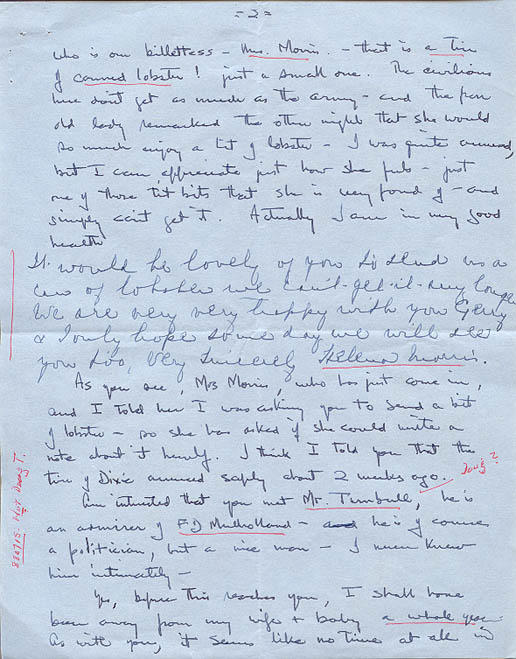 = 2 =
who is our billettess - Mrs. Morris. - that is a Tin
of canned lobster! just a small one. The civilians
here don't get as much as the army - and the poor
old lady remarked the other night that she would
so much enjoy a bit of lobster - I was quite amused,
but I can appreciate just how she feels - just
one of those tit bits that she is very fond of - and
simply can't get it. Actually I am in very good
health
It would be lovely of you to send us a
can of lobster we can't get it any longer
We are very very happy with you Gerry
& I only hope some day we will see
you too, Very Sincerely Helena Morris.
As you see, Mrs Morris, who has just come in,
and I told her I was asking you to send a bit
of lobster - so she has asked if she could write a
note about it herself. I think I told you that the
tin of Dixie arrived safely about 2 weeks ago.
Am interested that you met Mr. Turnbull, he is
an admirer of F.D Mulholland - and he is of course
a politician, but a nice man - I never knew
him intimately -
Yes, before this reaches you, I shall have
been away from my wife + baby a whole year
As with you, it seems like no time at all in